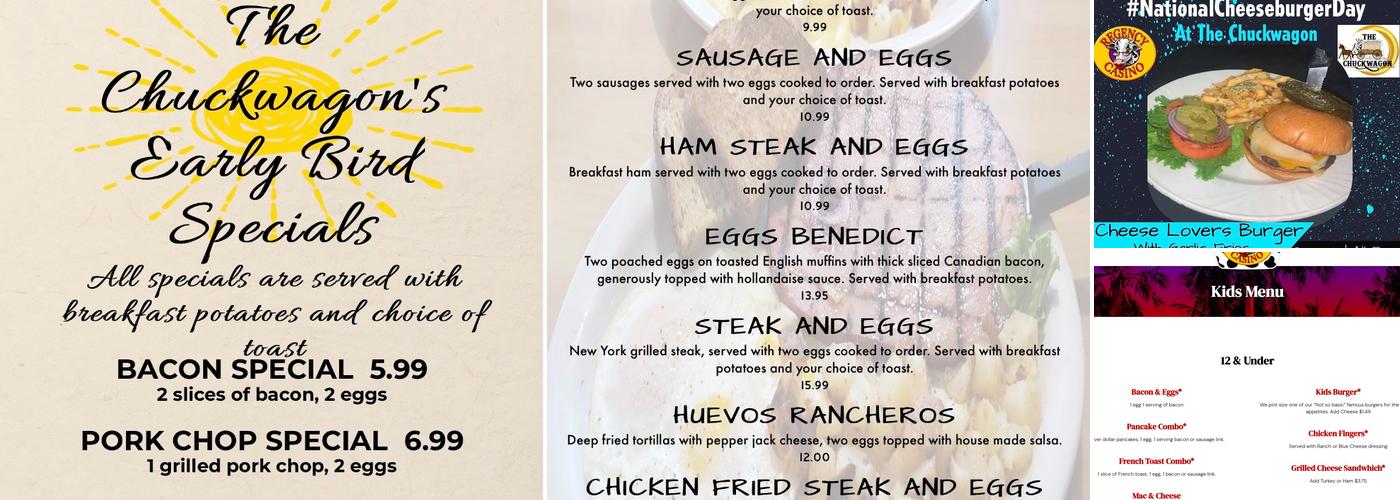 The
Chuckwagon's
Early Bird
Specials
All specials are served with
breakfast potatoes and choice of
toast
BACON SPECIAL 5.99
2 slices of bacon, 2 eggs
PORK CHOP SPECIAL 6.99
1 grilled pork chop, 2 eggs
your choice of toast.
9.99
SAUSAGE AND EGGS
Two sausages served with two eggs cooked to order. Served with breakfast potatoes
and your choice of toast.
10.99
HAM STEAK AND EGGS
Breakfast ham served with two eggs cooked to order. Served with breakfast potatoes
and your choice of toast.
10.99
EGGS BENEDICT
Two poached eggs on toasted English muffins with thick sliced Canadian bacon,
generously topped with hollandaise sauce. Served with breakfast potatoes.
13.95
STEAK AND EGGS
New York grilled steak, served with two eggs cooked to order. Served with breakfast
potatoes and your choice of toast.
15.99
HUEVOS RANCHEROS
Deep fried tortillas with pepper jack cheese, two eggs topped with house made salsa.
12.00
CHICKEN FRIED STEAK AND EGGS
#NationalCheeseburgerDay
At The Chuckwagon
REGENCY
CASINO
THE
CHUCKWAGON
Cheese Lovers Burger
With Garlic Fries
CASINO
Kids Menu
12 & Under
Bacon & Eggs*
1 egg 1 serving of bacon
Pancake Combo*
ver dollar pancakes, 1 egg, 1 serving bacon or sausage link.
French Toast Combo*
1 slice of French toast, 1 egg, 1 bacon or sausage link.
Mac & Cheese
Kids Burger*
We pint size one of our "Not so basic" famous burgers for the
appetites. Add Cheese $1.49
Chicken Fingers*
Served with Ranch or Blue Cheese dressing
Grilled Cheese Sandwhich*
Add Turkey or Ham $3.75